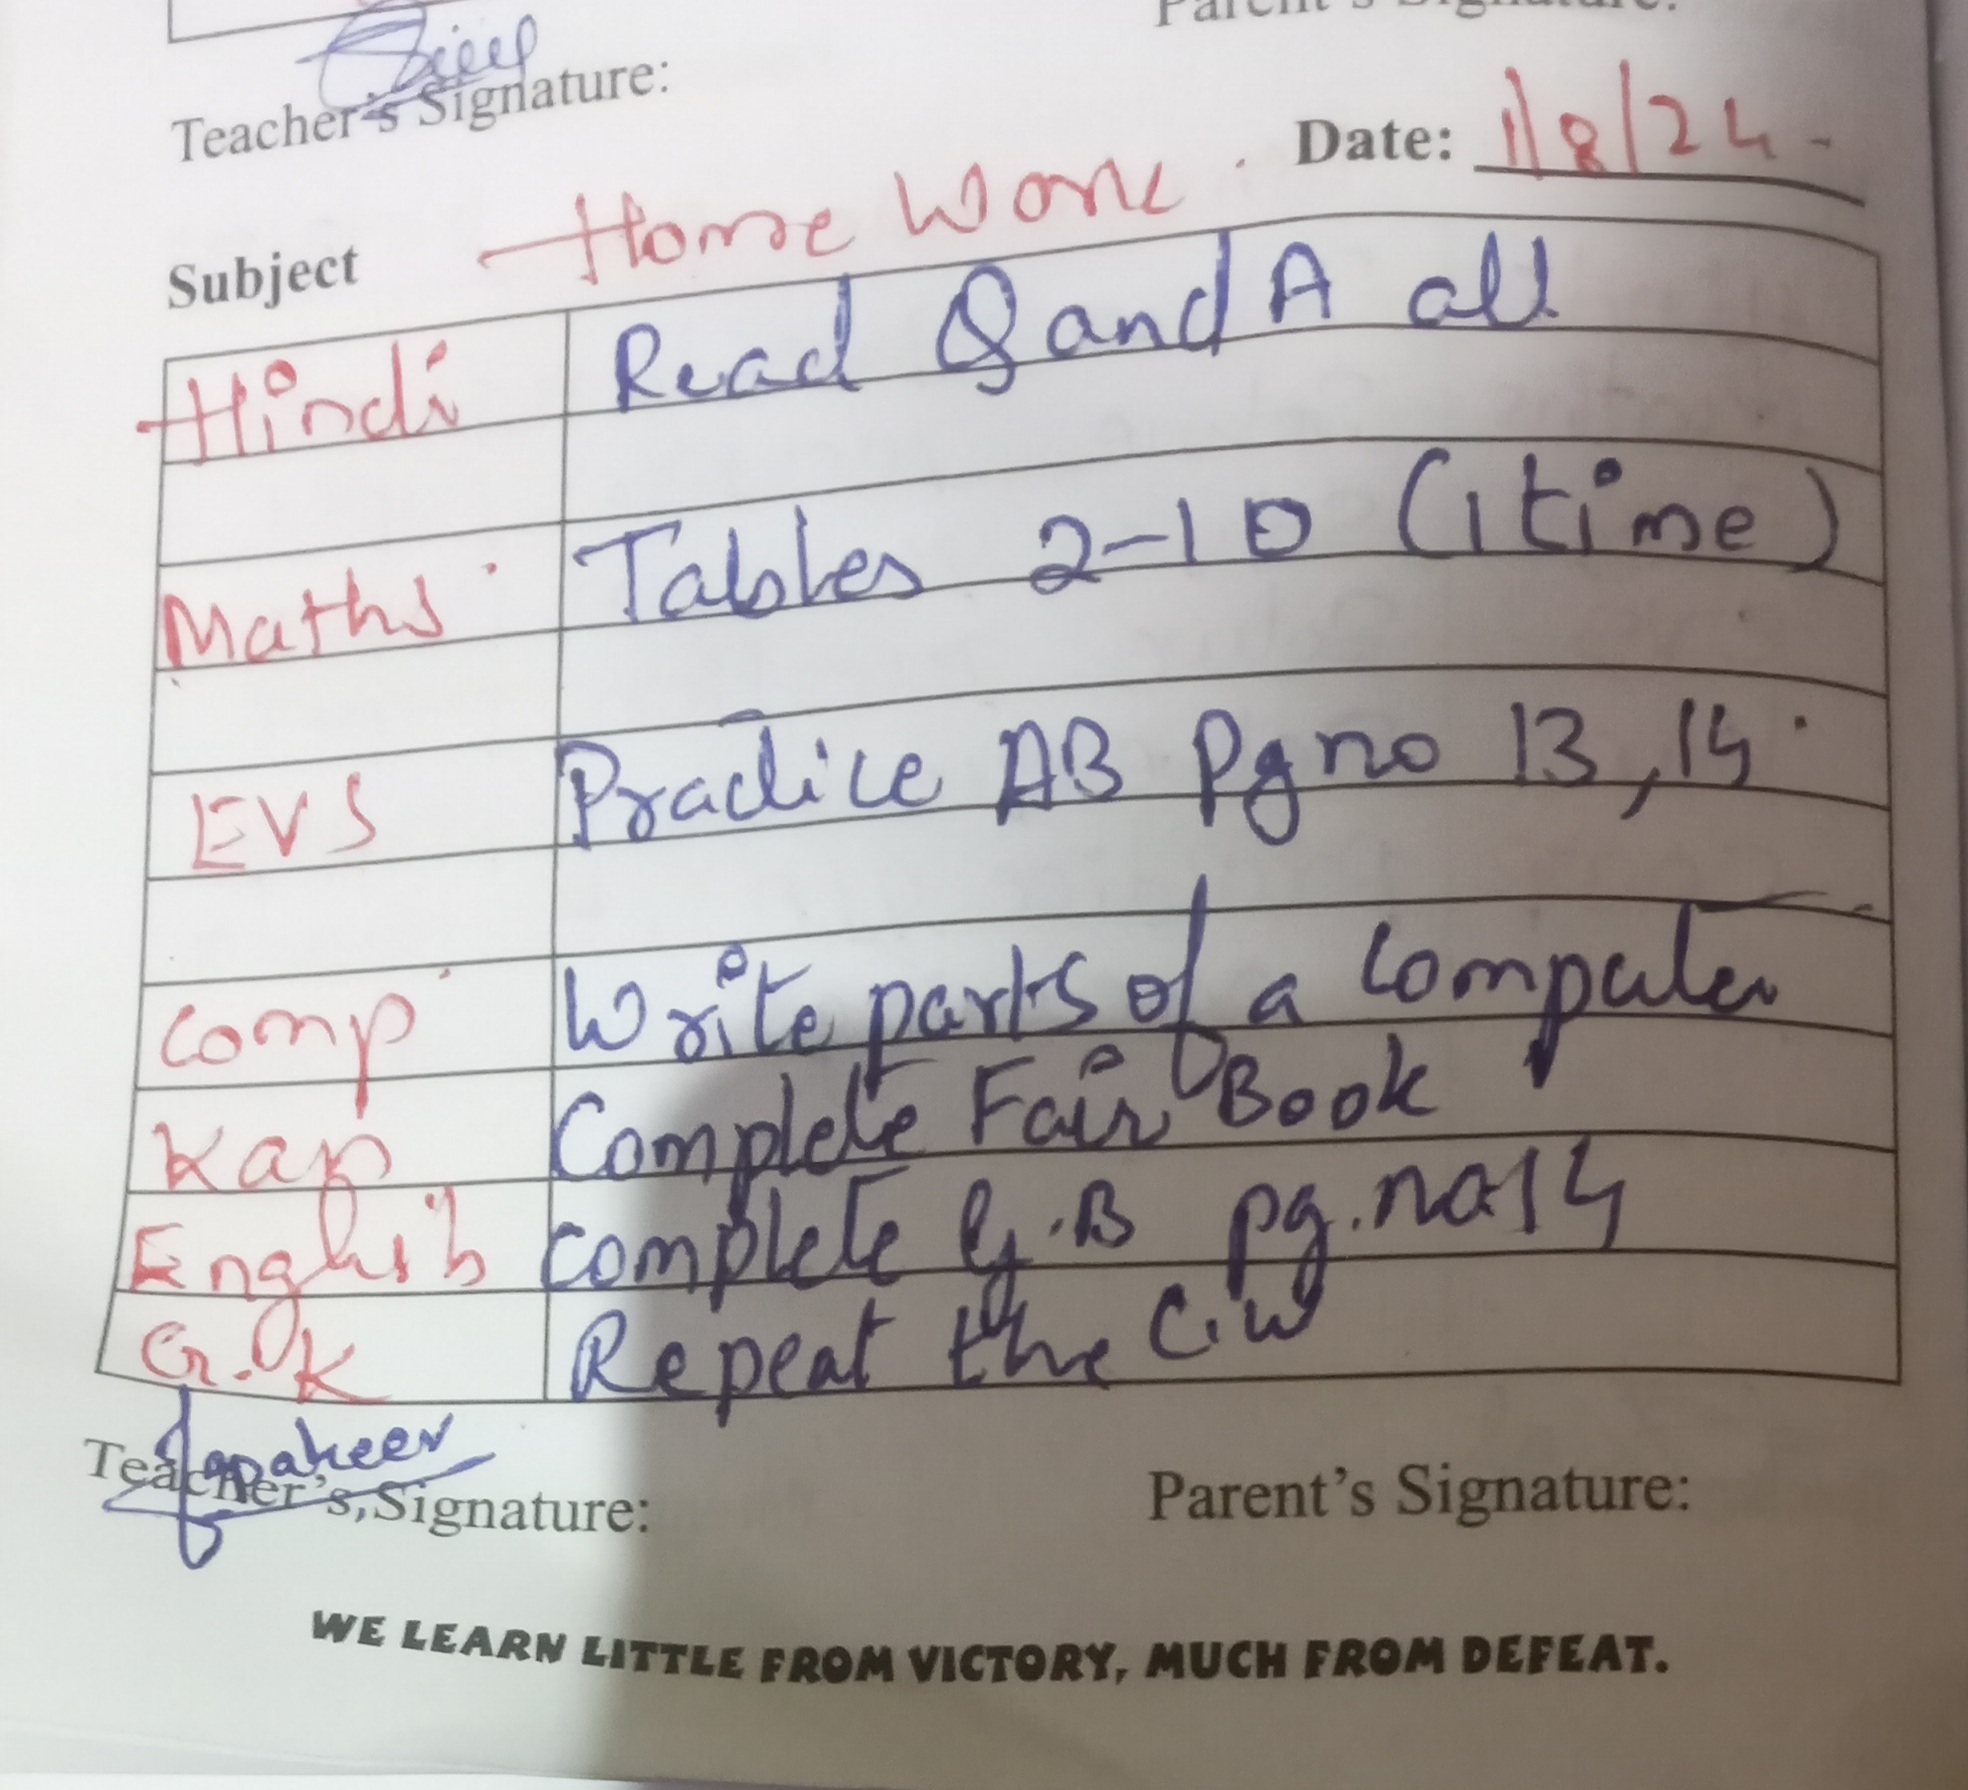 Parent's Signature:
Teacher's Signature:
Date: 1/8/24
Subject Home Work
Hindi Read Q and A all
Maths Tables 2-10 (1 time)
EVS Practice AB Pg no 13, 14
Comp Write parts of a Computer
Kan Complete Fair Book
English Complete G.B pg.no 14
G.K Repeat the C.W
Teacher's Signature:
Parent's Signature:
WE LEARN LITTLE FROM VICTORY, MUCH FROM DEFEAT.